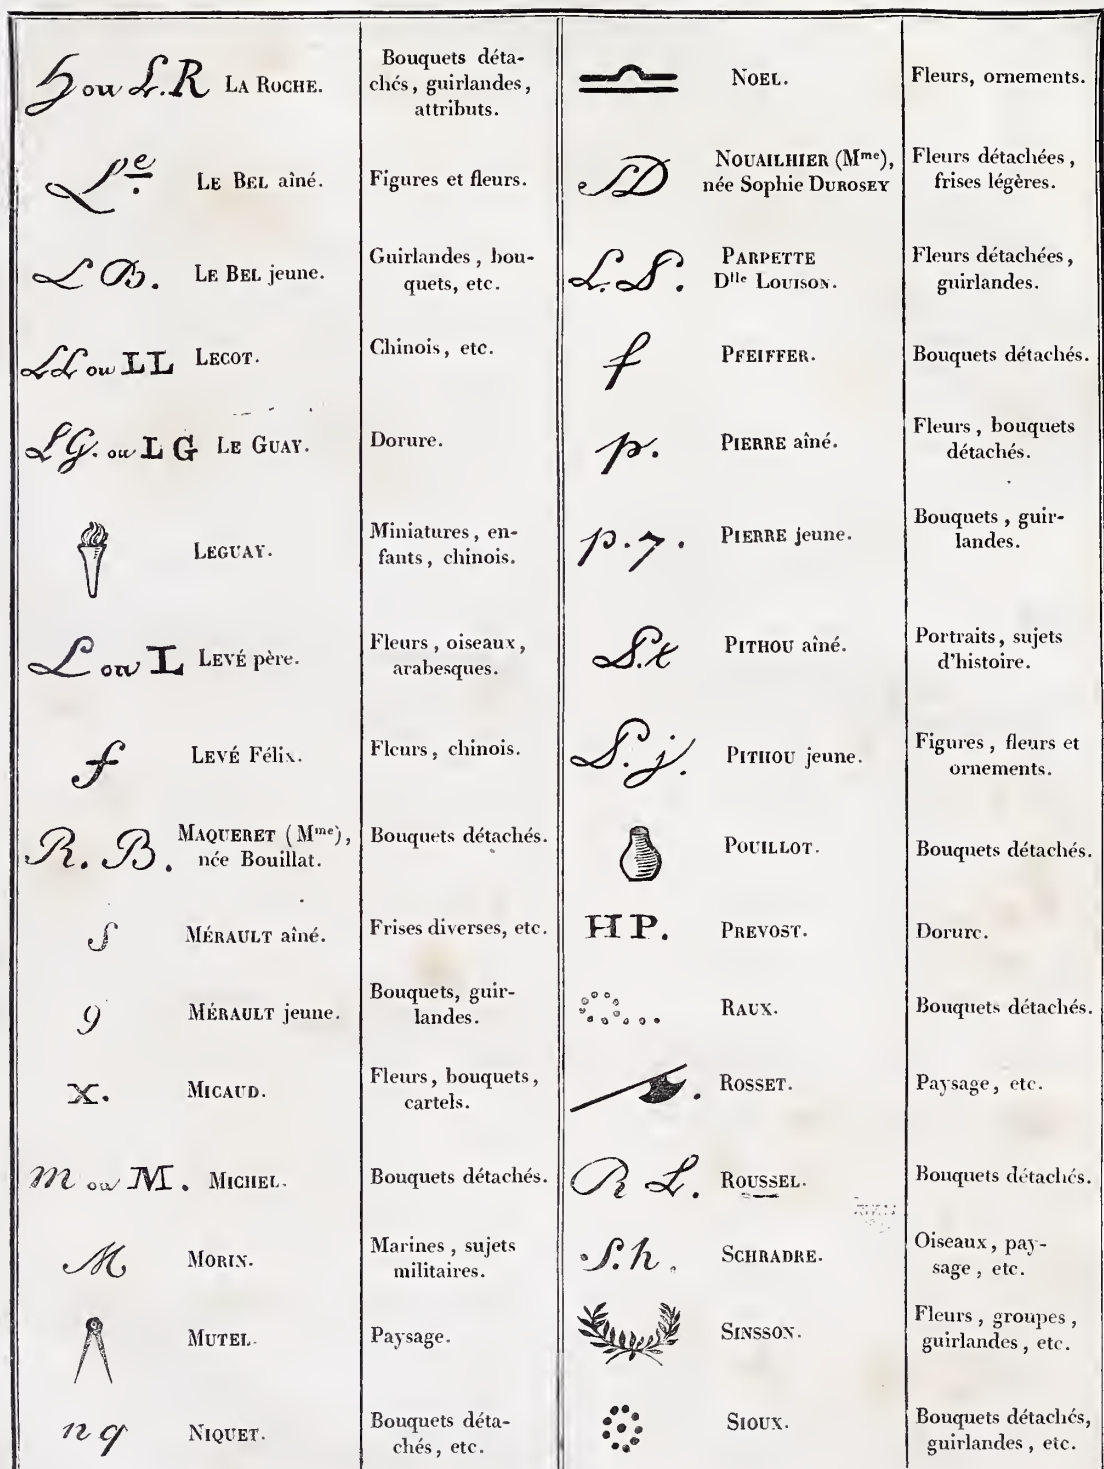 h ou L.R LA ROCHE.
Bouquets déta-
chés, guirlandes,
attributs.
Lᵉ. LE BEL aîné.
Figures et fleurs.
L B. LE BEL jeune.
Guirlandes, bou-
quets, etc.
LL ou LL LECOT.
Chinois, etc.
LG. ou LG LE GUAY.
Dorure.
LEGUAY.
Miniatures, en-
fants, chinois.
L ou L LEVÉ père.
Fleurs, oiseaux,
arabesques.
f LEVÉ Félix.
Fleurs, chinois.
R. B. MAQUERET (Mᵐᵉ),
née Bouillat.
Bouquets détachés.
S MÉRAULT aîné.
Frises diverses, etc.
9 MÉRAULT jeune.
Bouquets, guir-
landes.
X. MICAUD.
Fleurs, bouquets,
cartels.
m ou M. MICHEL.
Bouquets détachés.
M MORIN.
Marines, sujets
militaires.
MUTEL.
Paysage.
n q NIQUET.
Bouquets déta-
chés, etc.
NOEL.
Fleurs, ornements.
SD NOUAILHIER (Mᵐᵉ),
née Sophie DUROSEY
Fleurs détachées,
frises légères.
L. S. PARPETTE
Dˡˡᵉ LOUISON.
Fleurs détachées,
guirlandes.
f PFEIFFER.
Bouquets détachés.
p. PIERRE aîné.
Fleurs, bouquets
détachés.
p.7. PIERRE jeune.
Bouquets, guir-
landes.
S.t PITHOU aîné.
Portraits, sujets
d'histoire.
S.j. PITHOU jeune.
Figures, fleurs et
ornements.
POUILLOT.
Bouquets détachés.
HP. PREVOST.
Dorure.
RAUX.
Bouquets détachés.
ROSSET.
Paysage, etc.
R L. ROUSSEL.
Bouquets détachés.
S.h. SCHRADRE.
Oiseaux, pay-
sage, etc.
SINSSON.
Fleurs, groupes,
guirlandes, etc.
SIOUX.
Bouquets détachés,
guirlandes, etc.